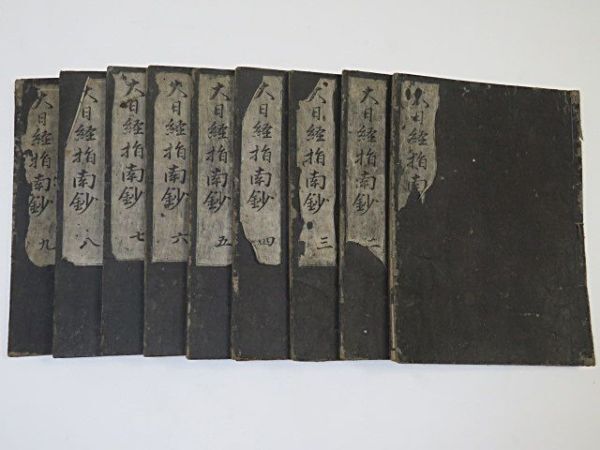 大日経指南
大日経指南鈔 二
大日経指南鈔 三
大日経指南鈔 四
大日経指南鈔 五
大日経指南鈔 六
大日経指南鈔 七
大日経指南鈔 八
大日経指南鈔 九